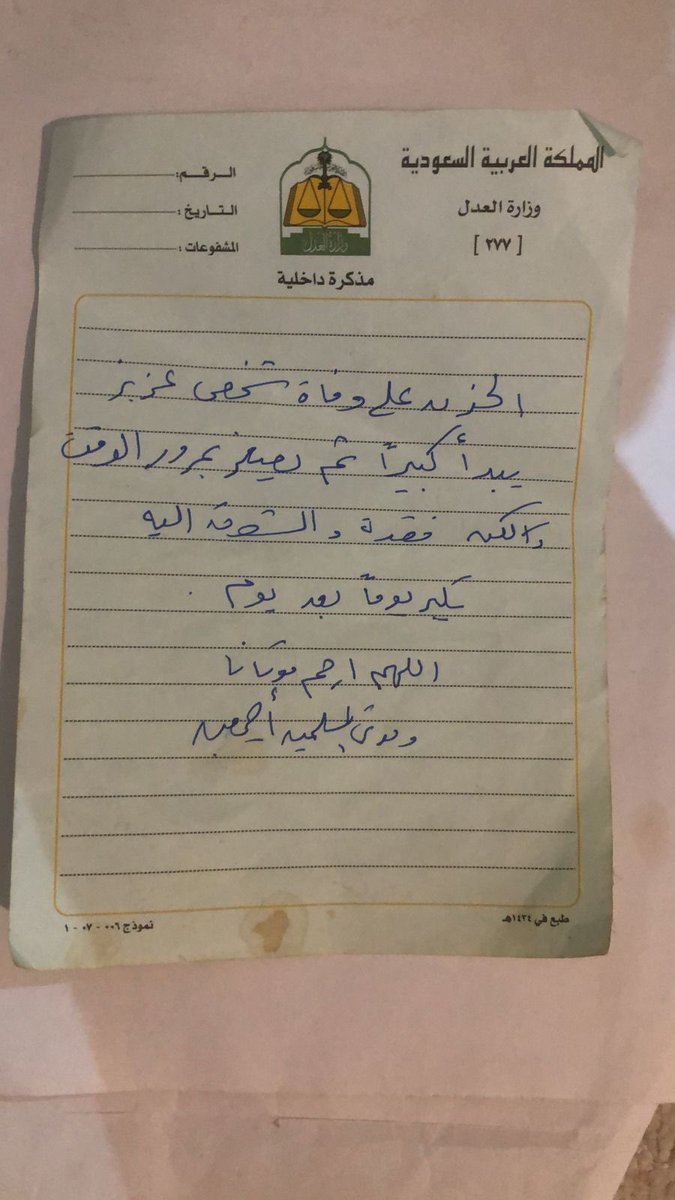 المملكة العربية السعودية
وزارة العدل
[ ٢٧٧ ]
الرقم:
التاريخ :
المشفوعات :
وزارة العدل
مذكرة داخلية
الحزن على وفاة شخص عزيز
يبدأ كبيراً ثم يصغر بمرور الوقت
ولاكن فقدة والشوق اليه
يكبر يوماً بعد يوم .
اللهم ارحم موتانا
وموتى المسلمين أجمعين
طبع في ١٤٣٤هـ
نموذج ٠٠٦ - ٠٧ - ١